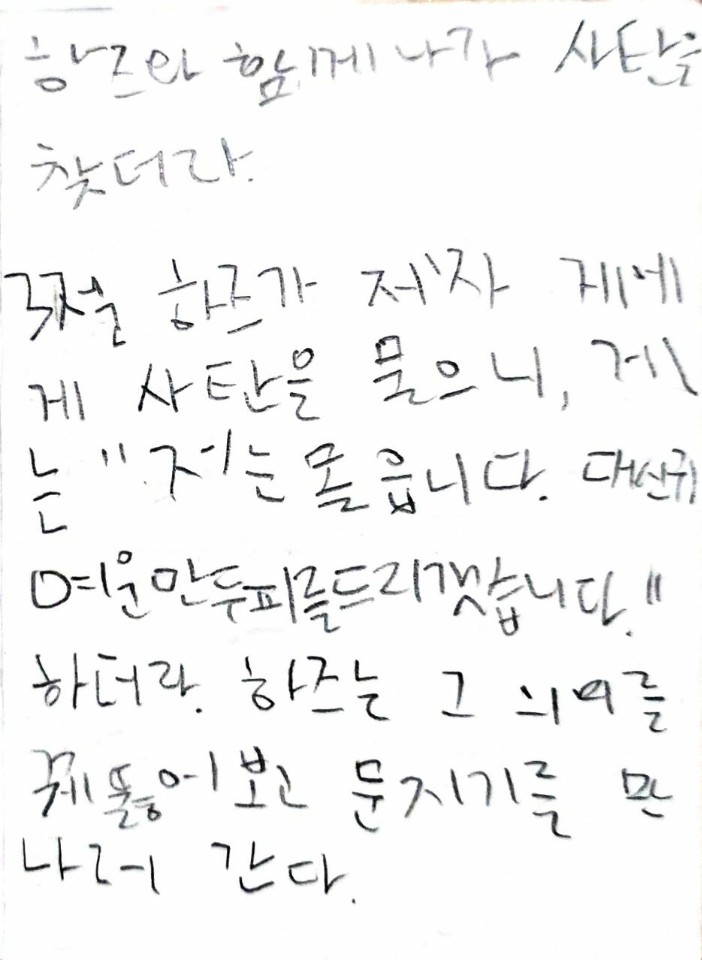 하즈와 함께 나가 사탄을
찾더라.
3절 하즈가 제자 게에
게 사탄을 물으니, 게
는 "저는 몰읍니다. 대신귀
여운만두피를드리겟습니다."
하더라. 하즈는 그 의미를
꿰뚫어보고 문지기를 만
나러 간다.